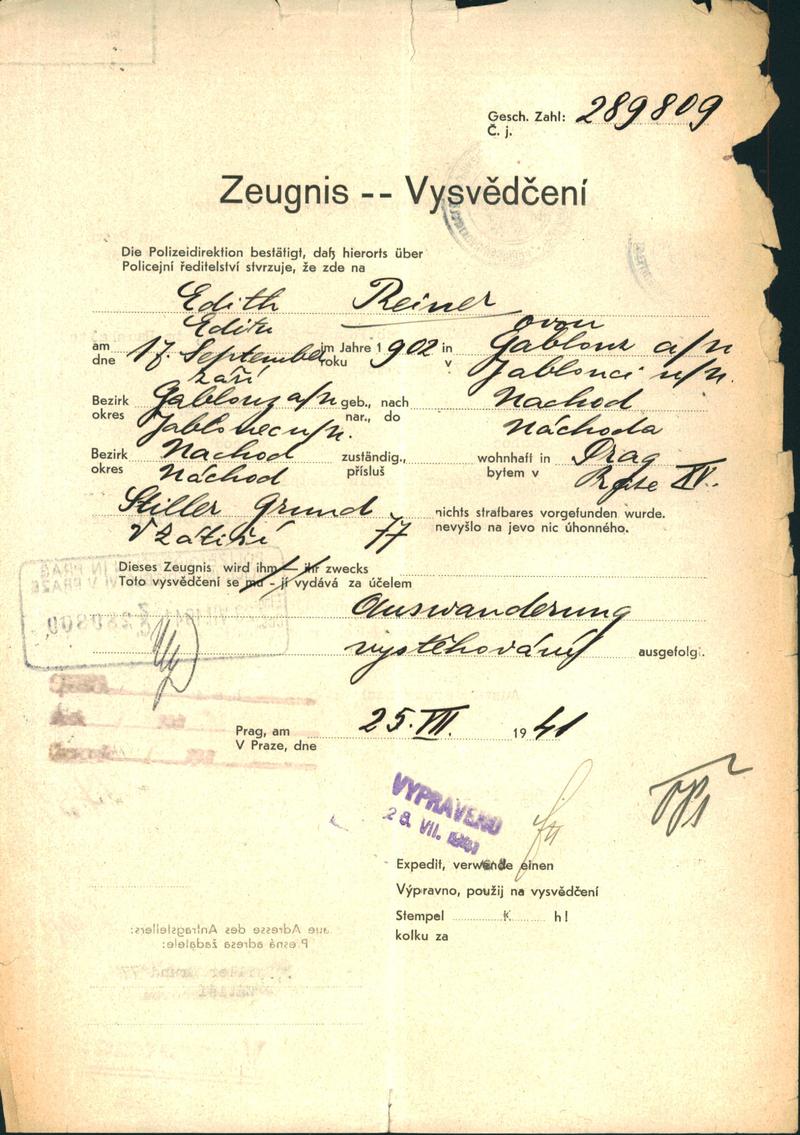 Gesch. Zahl: 289809
Č. j.
Zeugnis -- Vysvědčení
Die Polizeidirektion bestätigt, daß hierorts über
Policejní ředitelství stvrzuje, že zde na
Edith Reiner
Editu ovou
am 17. September im Jahre 1902 in Gablonz a/N
dne září roku v Jablonci n/N.
Bezirk Gablonz a/N geb., nach Nachod
okres Jablonec n/N. nar., do Náchoda
Bezirk Nachod zuständig., wohnhaft in Prag
okres Náchod přísluš bytem v Praze XV.
Stiller Grund nichts strafbares vorgefunden wurde.
V Zátiší 77 nevyšlo na jevo nic úhonného.
Dieses Zeugnis wird ihm — ihr zwecks
Toto vysvědčení se mu - jí vydává za účelem
Auswanderung
vystěhování ausgefolgt.
Prag, am 25. VII. 1941
V Praze, dne
VYPRAVENO
28. VII. 1941
Expedit, verwende einen
Výpravno, použij na vysvědčení
Stempel K h!
kolku za
Genaue Adresse des Antragstellers:
Přesná adresa žadatele: